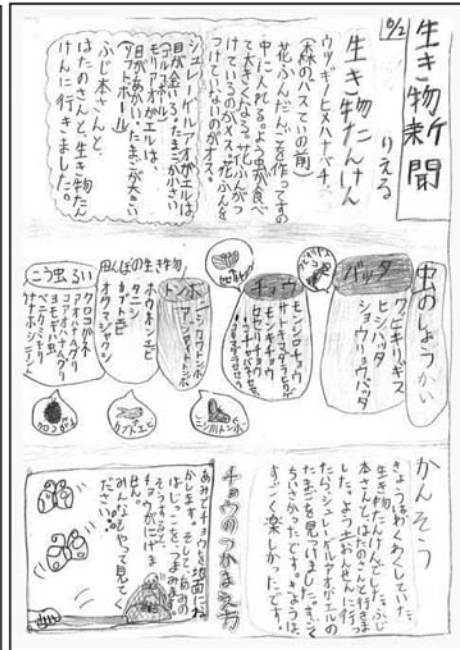 生き物新聞
りえる
6/2
生き物たんけん
ウツギノヒメハナバチ。
(森のバスていの前)
花ふんだんごを作ってすの
中に入れる。よう虫が食べ
て大きくなる。花ふんがつ
けているのがメス。花ふんを
つけていないのがオス。
シュレーゲルアオガエルは、
目が金いろ、たまごが小さい
(ゴルフボール)
モリアオガエルは、
目があかい、たまごが大きい
(ソフトボール)
ふじ本さんと、
はたのさんと、生き物たん
けんに行きました。
虫のしょうかい
バッタ
クビキリギス
ヒシバッタ
ショウリョウバッタ
チョウ
モンシロチョウ
モンキチョウ
セセリチョウ
トンボ
田んぼの生き物
ホウネンエビ
タニシ
カブトエビ
オタマジャクシ
こう虫るい
クロコガネ
アオハナムグリ
コアオハナムグリ
ヨモギハ虫
ベニカミキリ
ナナホシテントウ
クロコガネ
カブトエビ
かんそう
きょうはわくわくしていた、
生き物たんけんでした。ふじ
本さんと、はたのさんと行きま
した。よう土おんせんに行っ
たら、シュレーゲルアオガエルの
たまごを見つけました。すごく
ちいさかったです。きょうは、
すごく楽しかったです。
チョウのつかまえ方
あみでチョウを地面にね
かします。そして、あみの
はじっこをつまみます。
そうすると、
チョウがにげま
せん。
みんなもやって見てく
ださい。